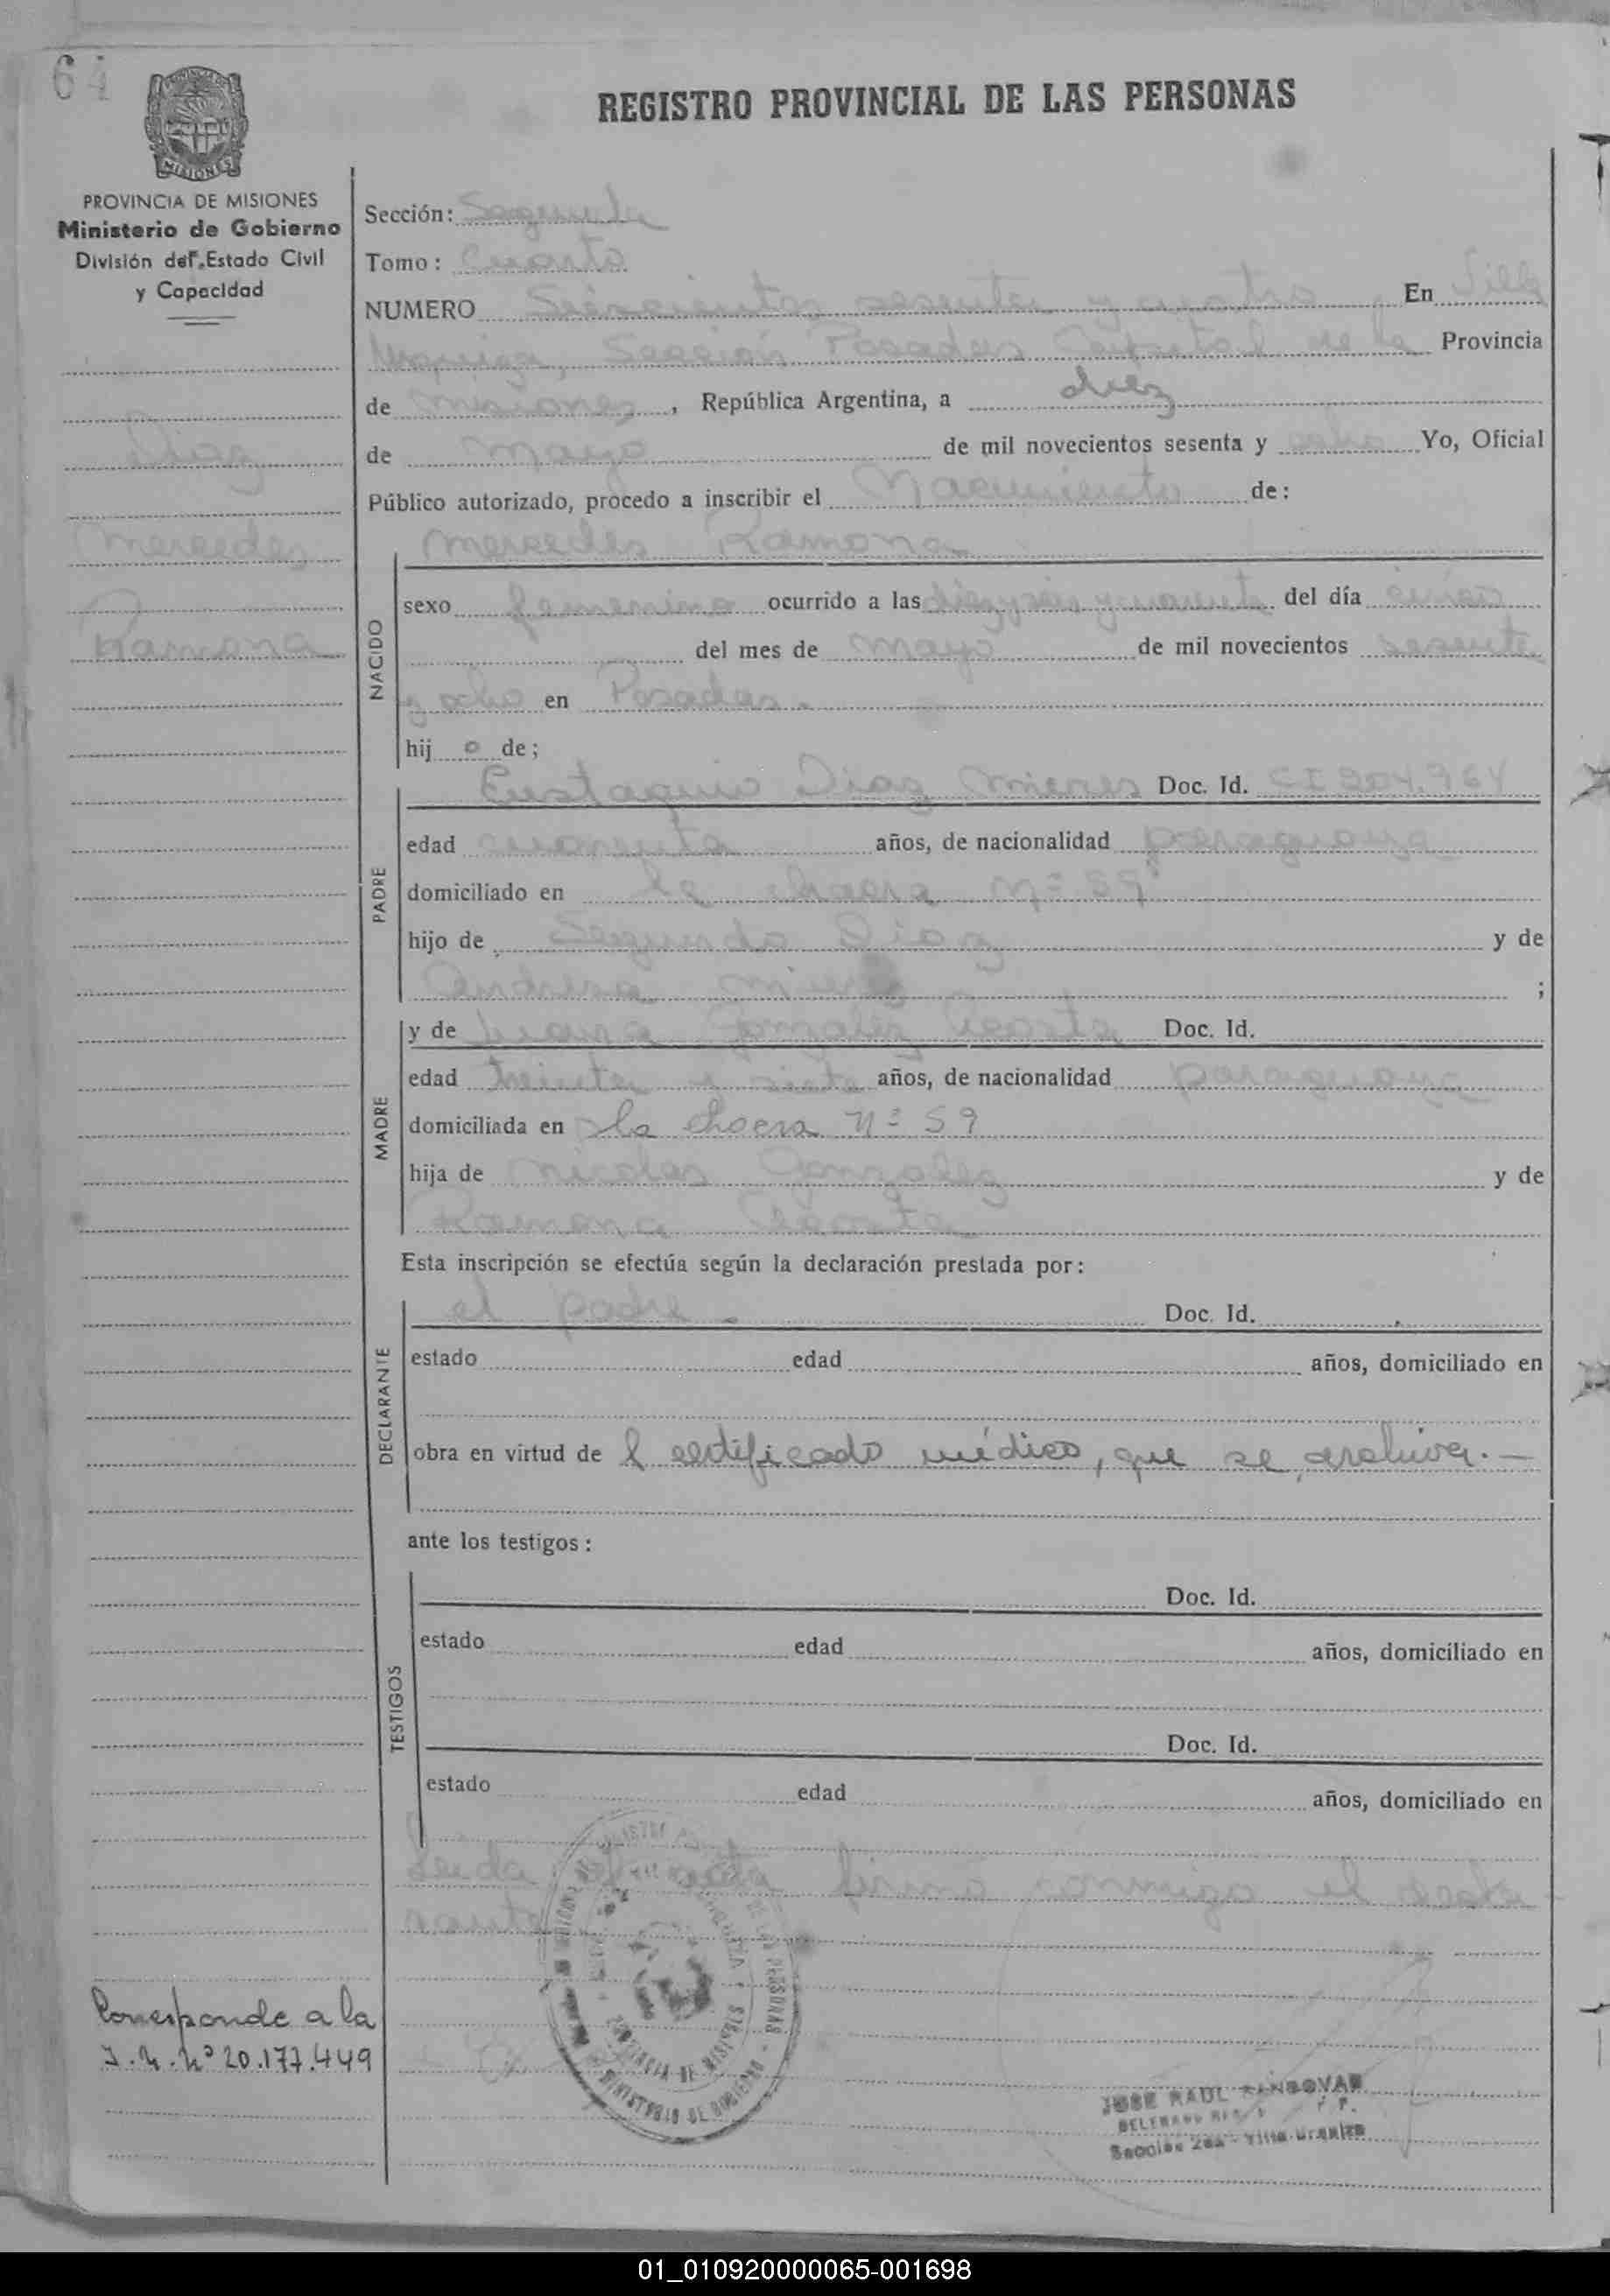 64
REGISTRO PROVINCIAL DE LAS PERSONAS
MISIONES
PROVINCIA DE MISIONES
Ministerio de Gobierno
División del Estado Civil
y Capacidad
Diaz
Mercedes
Ramona
Sección: Segunda
Tomo: Cuarto
NUMERO sesenta y cuatro En Villa
Urquiza, Sección Posadas Capital de la Provincia
de Misiones, República Argentina, a diez
de Mayo de mil novecientos sesenta y ocho Yo, Oficial
Público autorizado, procedo a inscribir el Nacimiento de:
NACIDO
Mercedes Ramona
sexo femenino ocurrido a las diez y seis y cuarenta del día cinco
del mes de Mayo de mil novecientos sesenta
y ocho en Posadas.
hij o de;
PADRE
Eustaquio Diaz Mieres Doc. Id. CI 304.964
edad cuarenta años, de nacionalidad paraguaya
domiciliado en la chacra Nº 59
hijo de Segundo Diaz y de
Mieres ;
MADRE
y de Gonzalez Acosta Doc. Id.
edad treinta y siete años, de nacionalidad paraguaya
domiciliada en la chacra Nº 59
hija de Nicolas Gonzalez y de
Ramona Acosta
Esta inscripción se efectúa según la declaración prestada por:
DECLARANTE
el padre. Doc. Id.
estado edad años, domiciliado en
obra en virtud de l certificado médico, que se archiva.—
ante los testigos:
TESTIGOS
Doc. Id.
estado edad años, domiciliado en
Doc. Id.
estado edad años, domiciliado en
Leida el acta firma conmigo el decla
rante
Corresponde a la
I.N. Nº 20.177.449
DE LAS PERSONAS
PROVINCIA DE MISIONES
MINISTERIO DE GOBIERNO
JOSE RAUL SANDOVAR
Sección 2da - Villa Urquiza
01_010920000065-001698